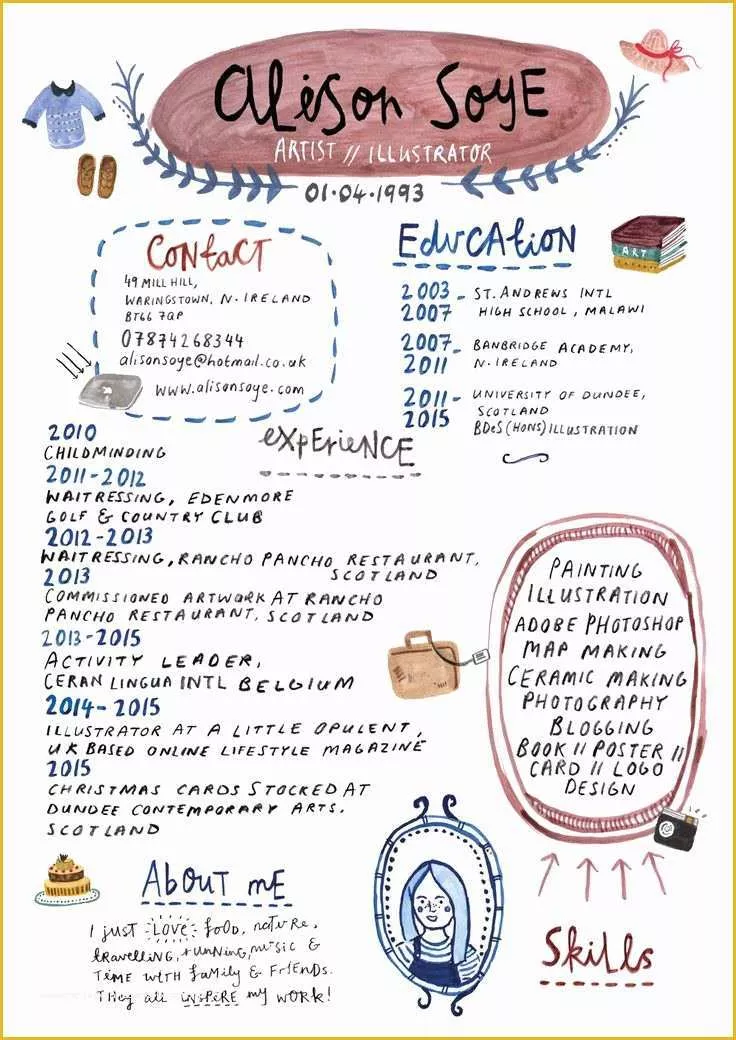 ALiSon SoyE
ARTIST // ILLUSTRATOR
01·04·1993
CoNtaCT
49 MILL HILL,
WARINGSTOWN, N·IRELAND
BT66 7QP
07874268344
alisonsoye@hotmail.co.uk
www.alisonsoye.com
EdUCAtioN
2003 - ST. ANDREWS INTL
2007 HIGH SCHOOL, MALAWI
2007- BANBRIDGE ACADEMY,
2011 N·IRELAND
2011- UNIVERSITY OF DUNDEE,
2015 SCOTLAND
BDeS (HONS) ILLUSTRATION
ART
eXpErieNCE
2010
CHILDMINDING
2011-2012
WAITRESSING, EDENMORE
GOLF & COUNTRY CLUB
2012-2013
WAITRESSING, RANCHO PANCHO RESTAURANT,
SCOTLAND
2013
COMMISSIONED ARTWORK AT RANCHO
PANCHO RESTAURANT, SCOTLAND
2013-2015
ACTIVITY LEADER,
CERAN LINGUA INTL BELGIUM
2014-2015
ILLUSTRATOR AT A LITTLE OPULENT,
UK BASED ONLINE LIFESTYLE MAGAZINE
2015
CHRISTMAS CARDS STOCKED AT
DUNDEE CONTEMPORARY ARTS.
SCOTLAND
PAINTING
ILLUSTRATION
ADOBE PHOTOSHOP
MAP MAKING
CERAMIC MAKING
PHOTOGRAPHY
BLOGGING
BOOK // POSTER //
CARD // LOGO
DESIGN
Skills
AboUT mE
I just LOVE food, nature,
travelling, running, music &
TiME WITH family & FriENds.
They all iNSPiRE my WORK!